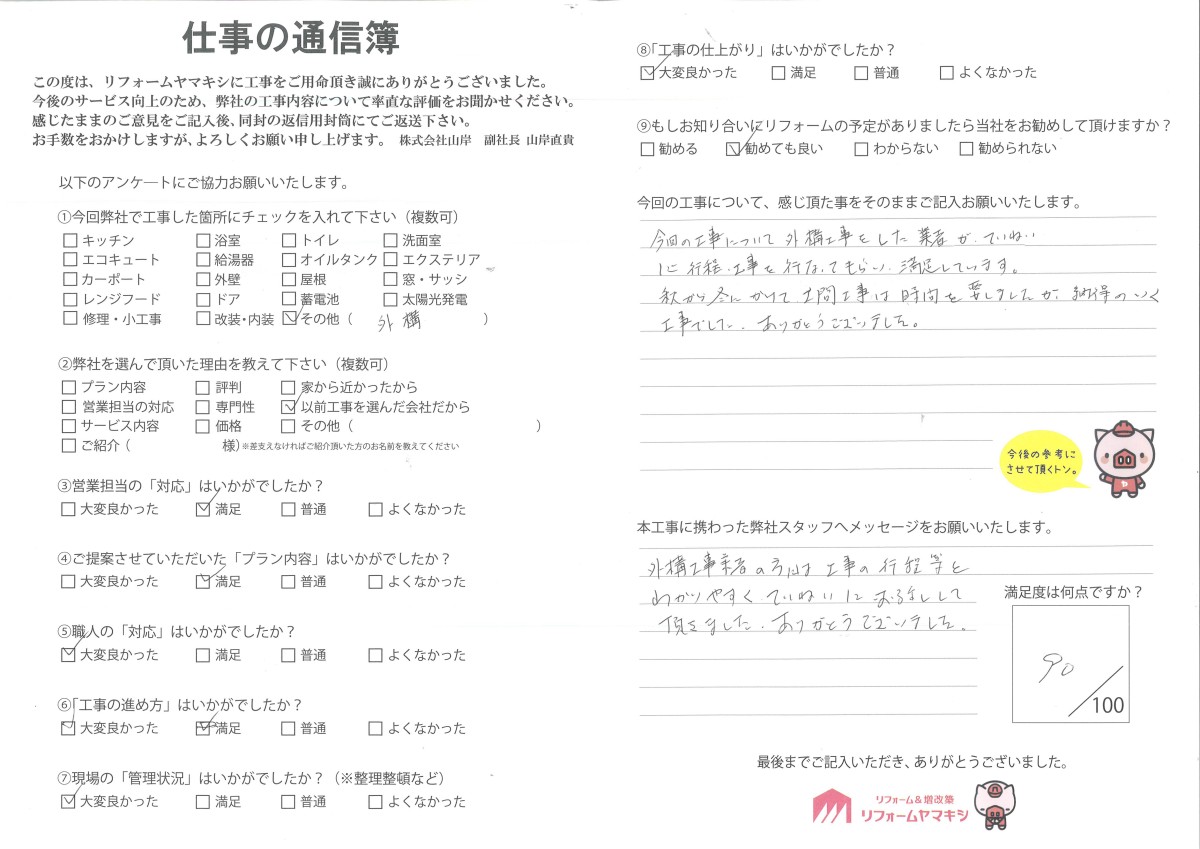 仕事の通信簿
この度は、リフォームヤマキシに工事をご用命頂き誠にありがとうございました。
今後のサービス向上のため、弊社の工事内容について率直な評価をお聞かせください。
感じたままのご意見をご記入後、同封の返信用封筒にてご返送下さい。
お手数をおかけしますが、よろしくお願い申し上げます。 株式会社山岸 副社長 山岸直貴
以下のアンケートにご協力お願いいたします。
①今回弊社で工事した箇所にチェックを入れて下さい（複数可）
□キッチン □浴室 □トイレ □洗面室
□エコキュート □給湯器 □オイルタンク □エクステリア
□カーポート □外壁 □屋根 □窓・サッシ
□レンジフード □ドア □蓄電池 □太陽光発電
□修理・小工事 □改装・内装 ☑その他（ 外構 ）
②弊社を選んで頂いた理由を教えて下さい（複数可）
□プラン内容 □評判 □家から近かったから
□営業担当の対応 □専門性 ☑以前工事を選んだ会社だから
□サービス内容 □価格 □その他（ ）
□ご紹介（ 様）※差支えなければご紹介頂いた方のお名前を教えてください
③営業担当の「対応」はいかがでしたか？
□大変良かった ☑満足 □普通 □よくなかった
④ご提案させていただいた「プラン内容」はいかがでしたか？
□大変良かった ☑満足 □普通 □よくなかった
⑤職人の「対応」はいかがでしたか？
☑大変良かった □満足 □普通 □よくなかった
⑥「工事の進め方」はいかがでしたか？
☑大変良かった ☑満足 □普通 □よくなかった
⑦現場の「管理状況」はいかがでしたか？（※整理整頓など）
☑大変良かった □満足 □普通 □よくなかった
⑧「工事の仕上がり」はいかがでしたか？
☑大変良かった □満足 □普通 □よくなかった
⑨もしお知り合いにリフォームの予定がありましたら当社をお勧めして頂けますか？
□勧める ☑勧めても良い □わからない □勧められない
今回の工事について、感じ頂た事をそのままご記入お願いいたします。
今回の工事について外構工事をした業者が、ていねい
に行程、工事を行なってもらい、満足しています。
秋から冬にかけて土間工事は時間を要しましたが、納得のいく
工事でした。ありがとうございました。
今後の参考に
させて頂くトン。
本工事に携わった弊社スタッフへメッセージをお願いいたします。
外構工事業者の方には工事の行程等を
わかりやすく、ていねいに お話しして
頂きました。ありがとうございました。
満足度は何点ですか？
90
／100
最後までご記入いただき、ありがとうございました。
リフォーム＆増改築
リフォームヤマキシ